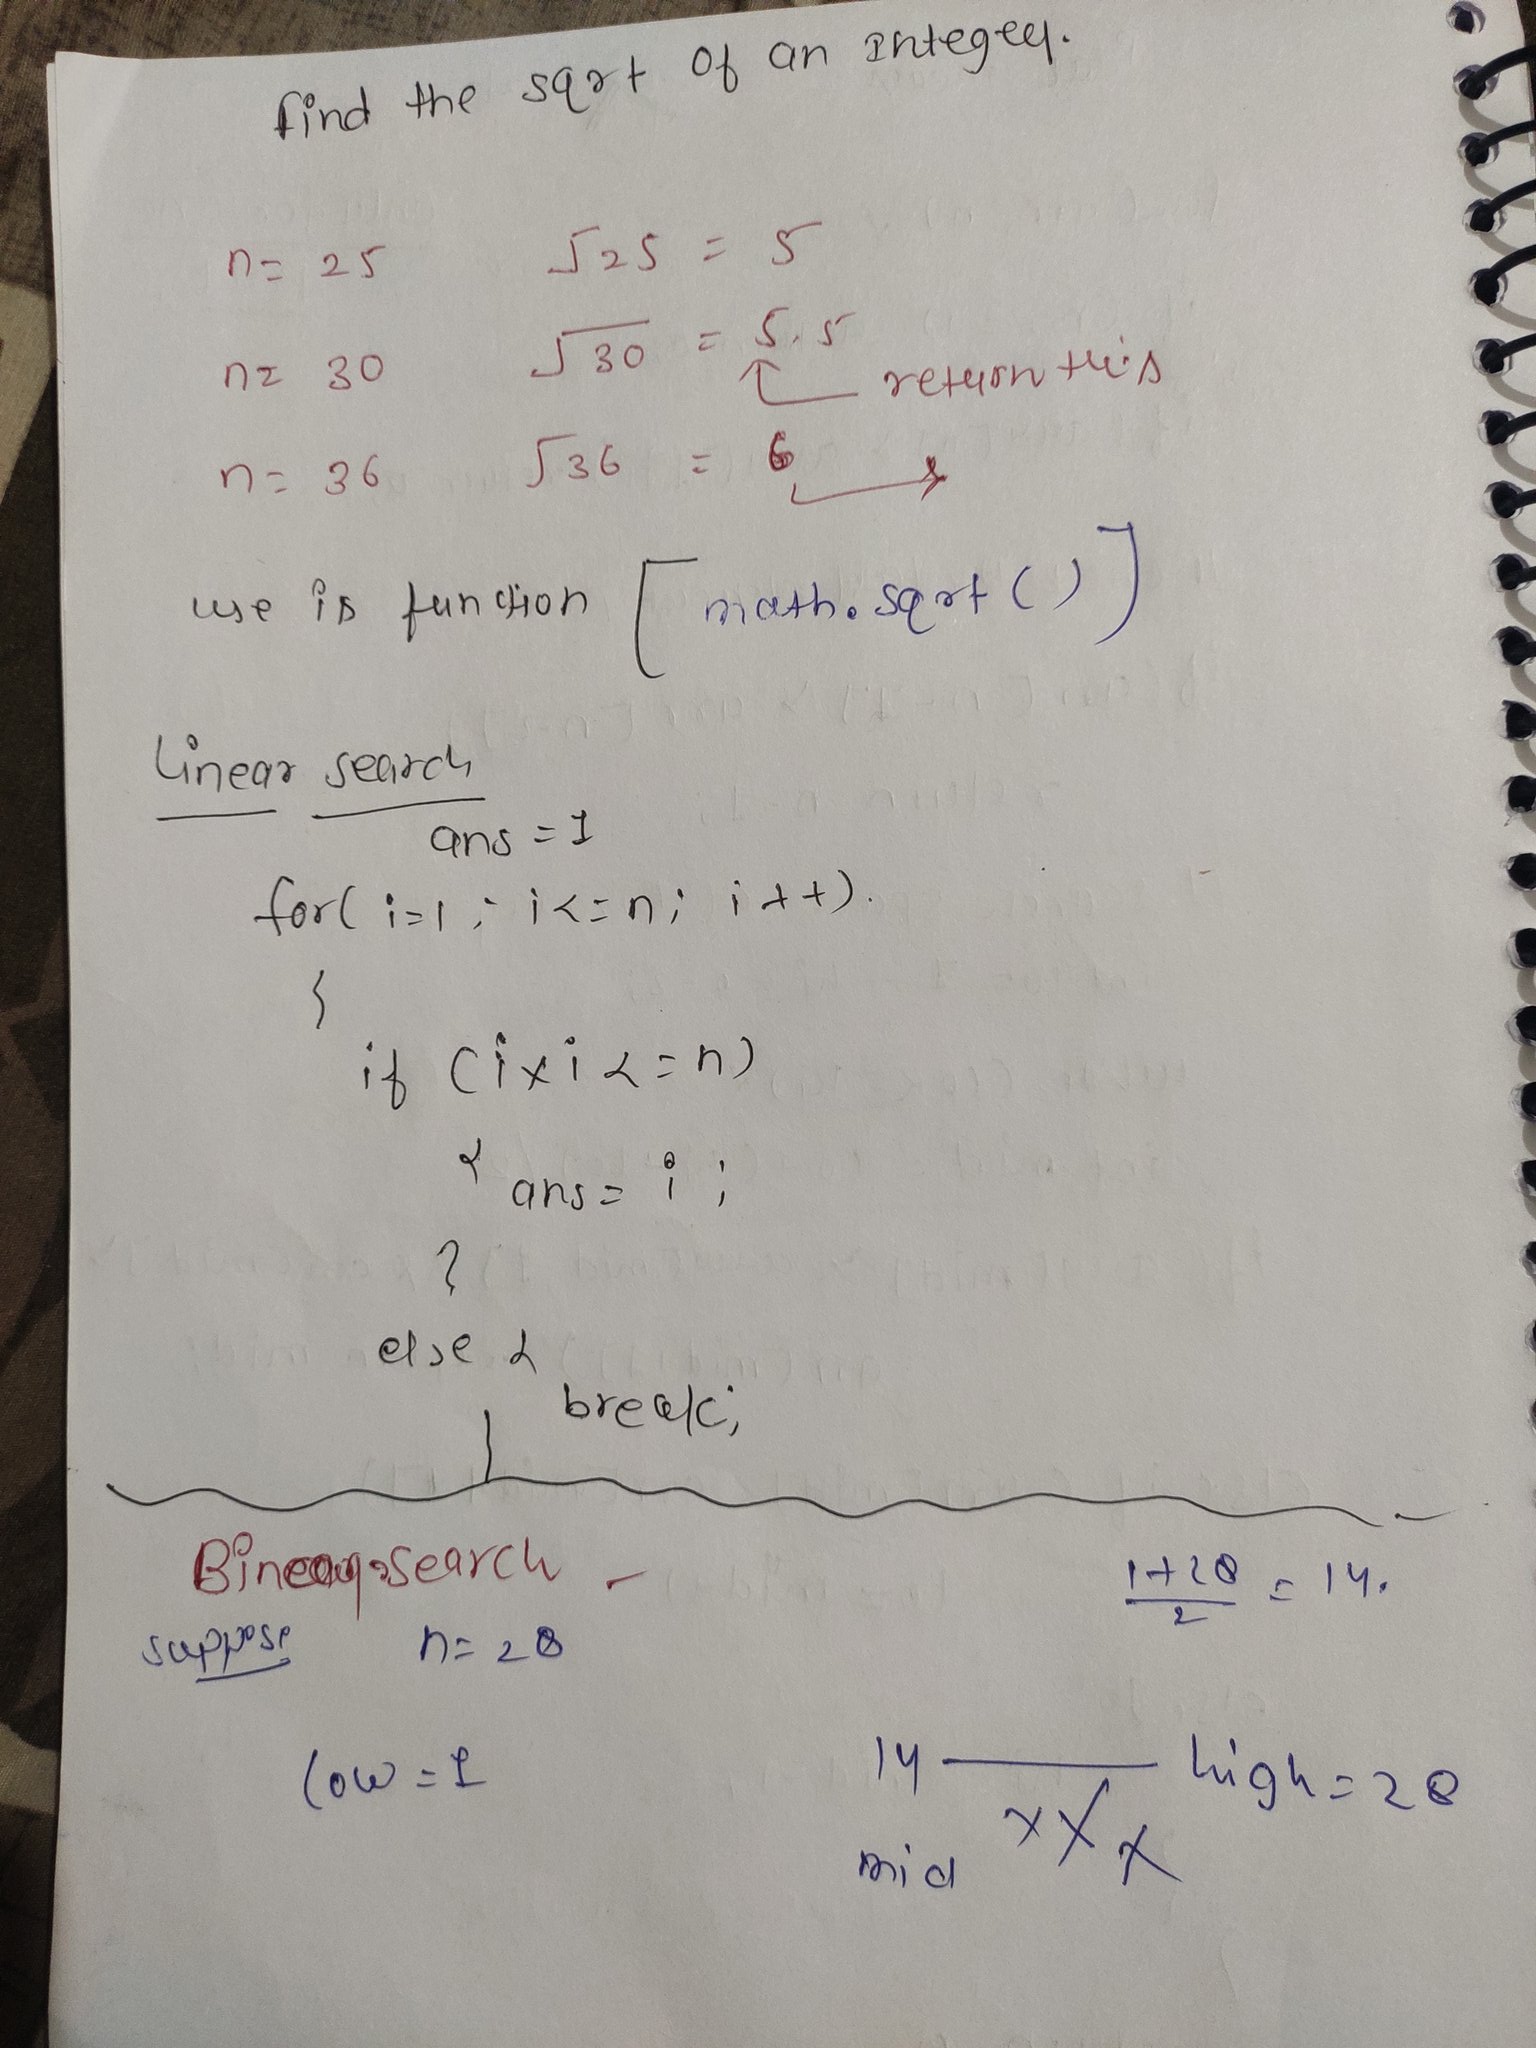 find the sqrt of an Integer.
n= 25 √25 = 5
n= 30 √30 = 5.5
return this
n= 36 √36 = 6
use is function [ math.sqrt() ]
Linear search
ans = 1
for( i=1; i<=n; i++).
{
if (i×i <= n)
{ ans = i ;
}
else {
break;
Binary search -
1+28/2 = 14.
suppose n= 28
low = 1 14 high = 28
mid